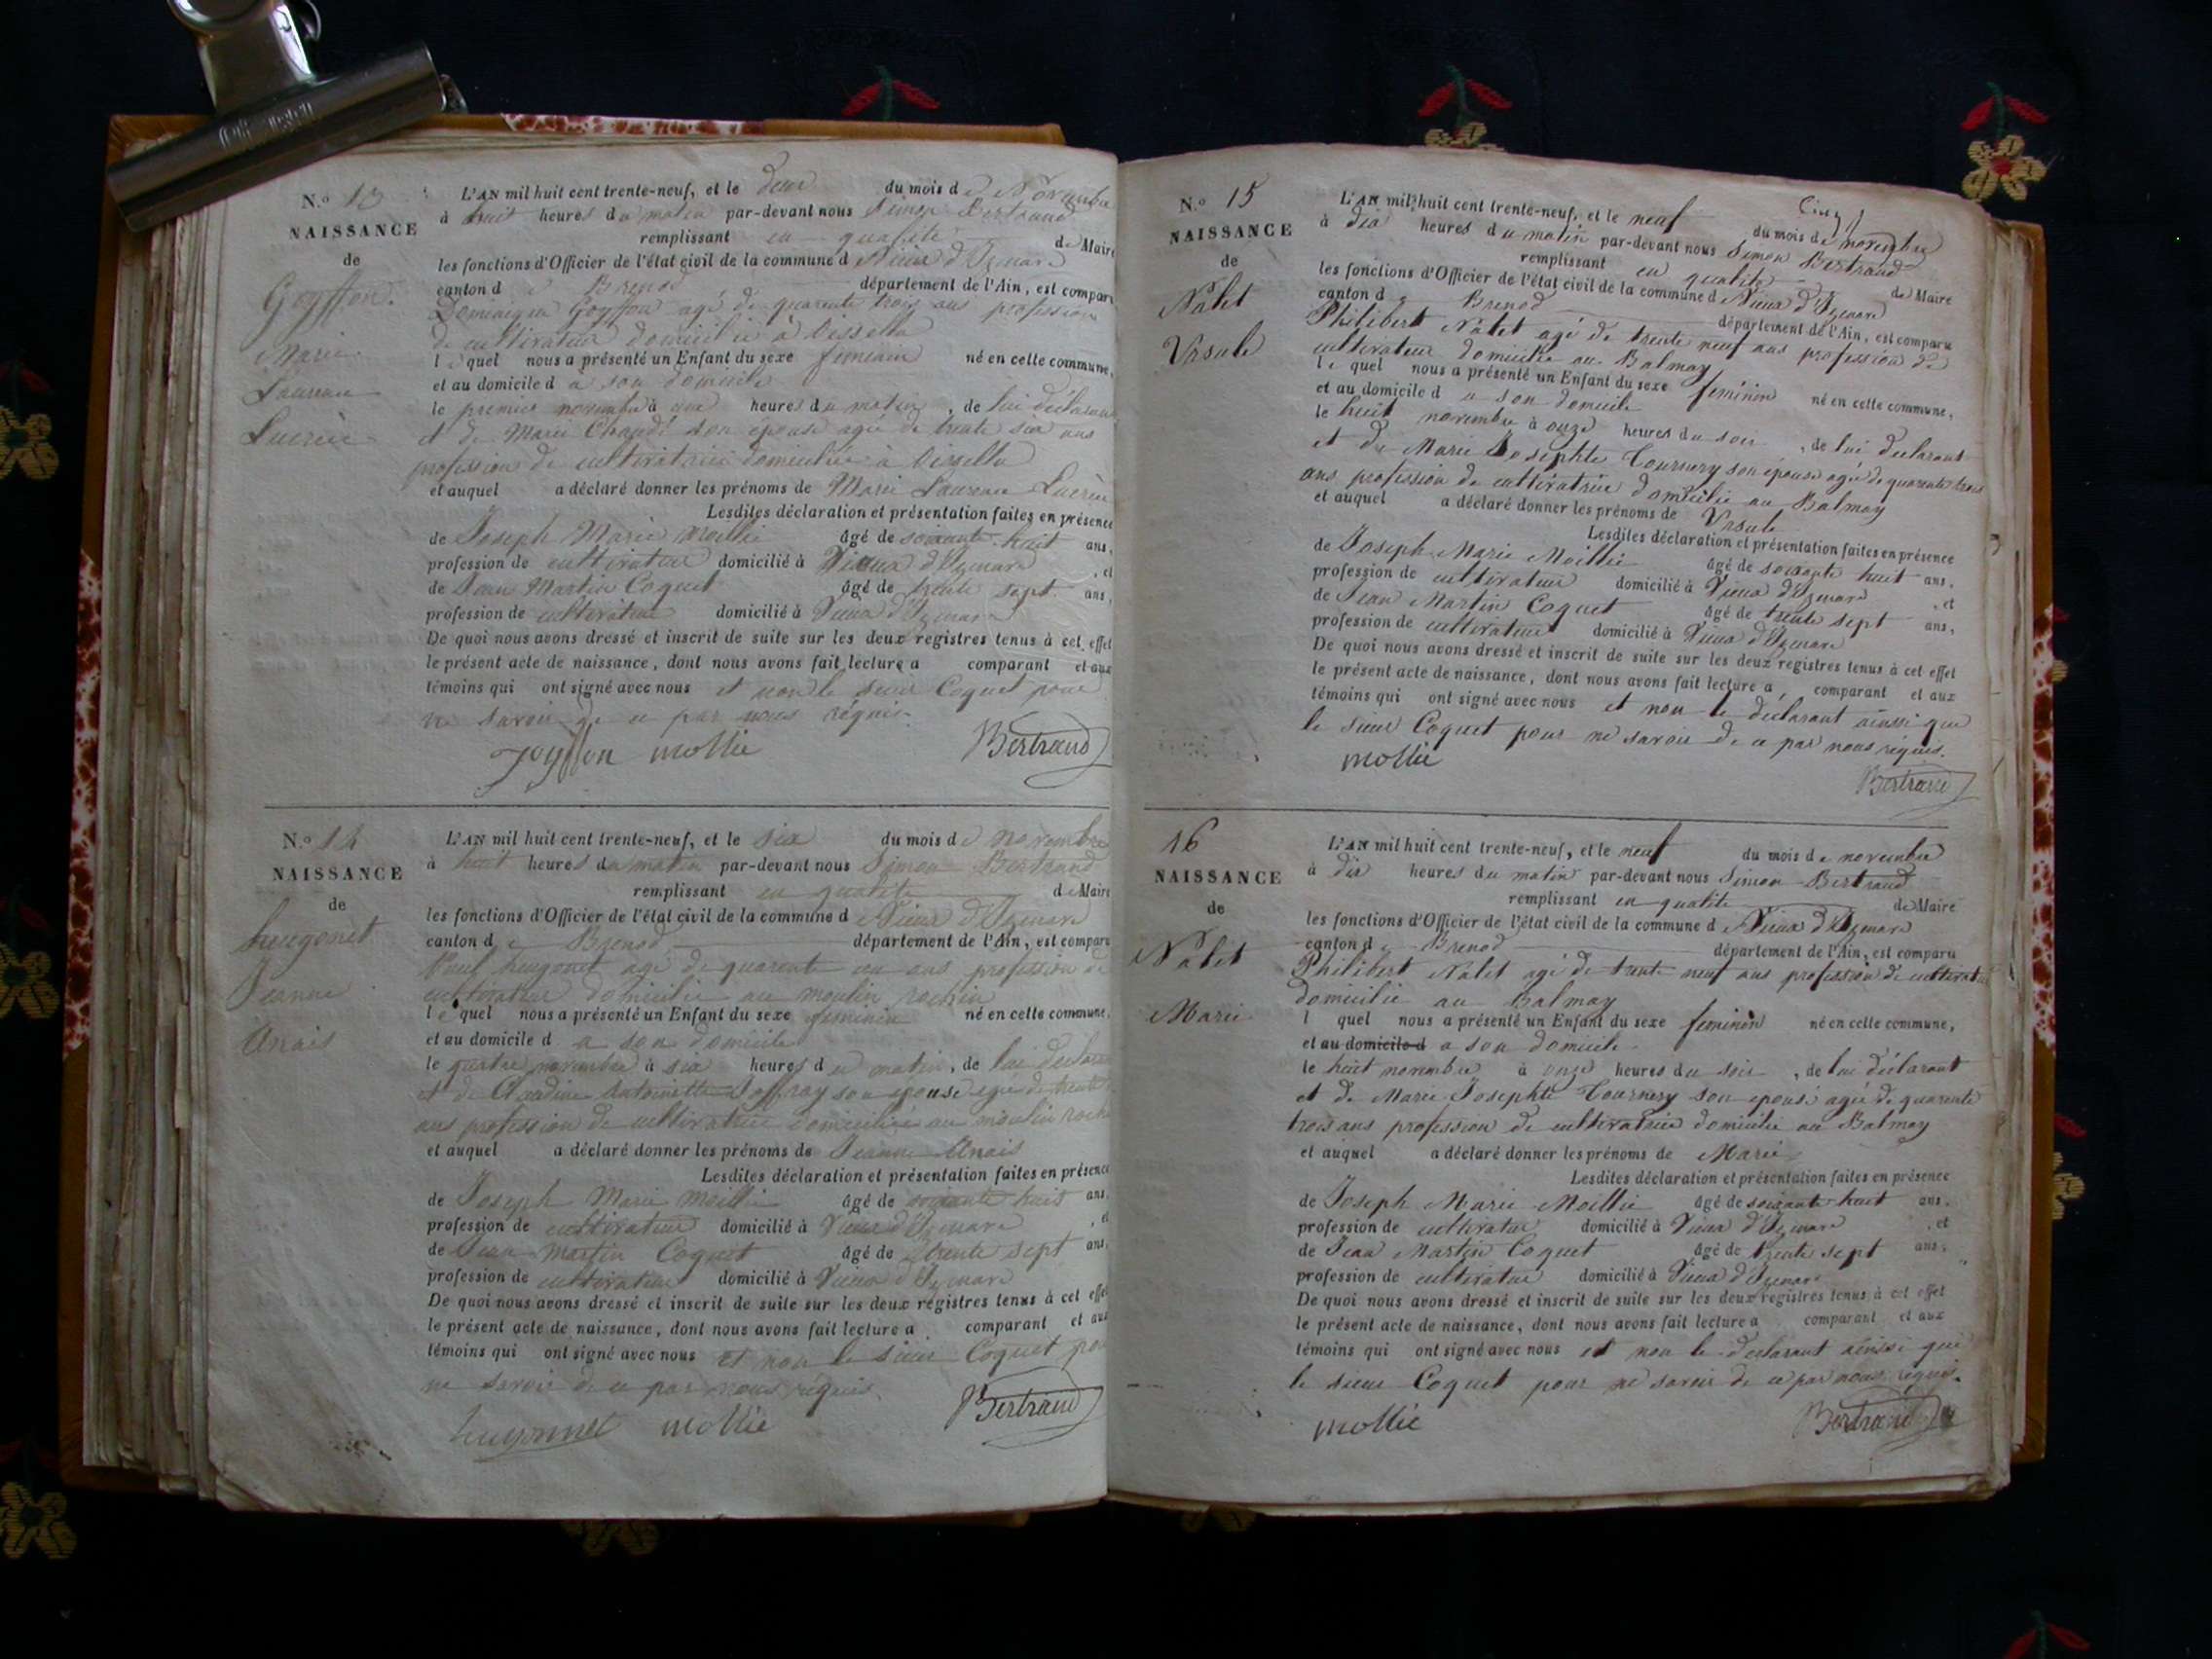 N.° 13
NAISSANCE
de
Goyffon
Marie
Laurence
L'AN mil huit cent trente-neuf, et le deux du mois de Novembre
à huit heures du matin par-devant nous Simon Bertrand
remplissant en qualité de Maire
les fonctions d'Officier de l'état civil de la commune d Vieux d'Izenave
canton de Brenod département de l'Ain, est comparu
Dominique Goyffon agé de quarente trois ans profession
de cultivateur domicilié à
le quel nous a présenté un Enfant du sexe feminin né en cette commune,
et au domicile d à son domicile
le premier novembre à heures du matin, de lui déclarant
et de Marie son epouse agée de trente six ans
profession de cultivatrice domiciliée à
et auquel a déclaré donner les prénoms de Marie Laurence
Lesdites déclaration et présentation faites en présence
de Joseph Marie Moillie âgé de soixante huit ans,
profession de cultivateur domicilié à Vieux d'Izenave, et
de Jean Martin Coquet âgé de trente sept ans,
profession de cultivateur domicilié à Vieux d'Izenave
De quoi nous avons dressé et inscrit de suite sur les deux registres tenus à cet effet
le présent acte de naissance, dont nous avons fait lecture a comparant et aux
témoins qui ont signé avec nous et non le sieur Coquet pour
ne savoir de ce par nous réquis.
joyffon mollie Bertrand
N.° 14
NAISSANCE
de
hugonet
Jeanne
Anais
L'AN mil huit cent trente-neuf, et le six du mois de novembre
à huit heures du matin par-devant nous Simon Bertrand
remplissant en qualité de Maire
les fonctions d'Officier de l'état civil de la commune d Vieux d'Izenave
canton de Brenod département de l'Ain, est comparu
Paul hugonet agé de quarente un ans profession de
cultivateur domicilié au moulin rochin
le quel nous a présenté un Enfant du sexe feminin né en cette commune,
et au domicile d a son domicile
le quatre novembre à six heures du matin, de lui déclarant
et de Claudine Antoinette Joffray son epouse agée de trente
ans profession de cultivatrice domiciliée au moulin
et auquel a déclaré donner les prénoms de Jeanne Anais
Lesdites déclaration et présentation faites en présence
de Joseph Marie Moillie âgé de soixante huit ans,
profession de cultivateur domicilié à Vieux d'Izenave, et
de Jean Martin Coquet âgé de trente sept ans,
profession de cultivateur domicilié à Vieux d'Izenave
De quoi nous avons dressé et inscrit de suite sur les deux registres tenus à cet effet
le présent acte de naissance, dont nous avons fait lecture a comparant et aux
témoins qui ont signé avec nous et non le sieur Coquet pour
ne savoir de ce par nous réquis.
hugonnet mollie Bertrand
N.° 15
NAISSANCE
de
Nalet
Ursule
L'AN mil huit cent trente-neuf, et le neuf du mois de novembre
à dix heures du matin par-devant nous Simon Bertrand
remplissant en qualité de Maire
les fonctions d'Officier de l'état civil de la commune d Vieux d'Izenave
canton de Brenod département de l'Ain, est comparu
Philibert Nalet agé de trente neuf ans profession de
cultivateur domicilié au Balmay
le quel nous a présenté un Enfant du sexe féminin né en cette commune,
et au domicile d a son domicile
le huit novembre à onze heures du soir, de lui declarant
et de Marie Josephte Tournery son épouse agée de quarente trois
ans profession de cultivatrice domicilie au Balmay
et auquel a déclaré donner les prénoms de Ursule
Lesdites déclaration et présentation faites en présence
de Joseph Marie Moillie âgé de soixante huit ans,
profession de cultivateur domicilié à Vieux d'Izenave, et
de Jean Martin Coquet âgé de trente sept ans,
profession de cultivateur domicilié à Vieux d'Izenave
De quoi nous avons dressé et inscrit de suite sur les deux registres tenus à cet effet
le présent acte de naissance, dont nous avons fait lecture a, comparant et aux
témoins qui ont signé avec nous et non le declarant ainssi que
le sieur Coquet pour ne savoir de ce par nous réquis.
mollie
Bertrand
16
NAISSANCE
de
Nalet
Marie
L'AN mil huit cent trente-neuf, et le neuf du mois de novembre
à dix heures du matin par-devant nous Simon Bertrand
remplissant en qualité de Maire
les fonctions d'Officier de l'état civil de la commune d Vieux d'Izenave
canton de Brenod département de l'Ain, est comparu
Philibert Nalet agé de trente neuf ans profession de cultivateur
domicilie au Balmay
l quel nous a présenté un Enfant du sexe feminin né en cette commune,
et au domicile d a son domicile
le huit novembre à onze heures du soir, de lui déclarant
et de Marie Josephte Tournery son epouse agée de quarente
trois ans profession de cultivatrice domicilie au Balmay
et auquel a déclaré donner les prénoms de Marie
Lesdites déclaration et présentation faites en présence
de Joseph Marie Moillie âgé de soixante huit ans,
profession de cultivateur domicilié à Vieux d'Izenave, et
de Jean Martin Coquet âgé de trente sept ans,
profession de cultivateur domicilié à Vieux d'Izenave
De quoi nous avons dressé et inscrit de suite sur les deux registres tenus à cet effet
le présent acte de naissance, dont nous avons fait lecture a comparant et aux
témoins qui ont signé avec nous et non le declarant ainssi que
le sieur Coquet pour ne savoir de ce par nous réquis.
mollie Bertrand